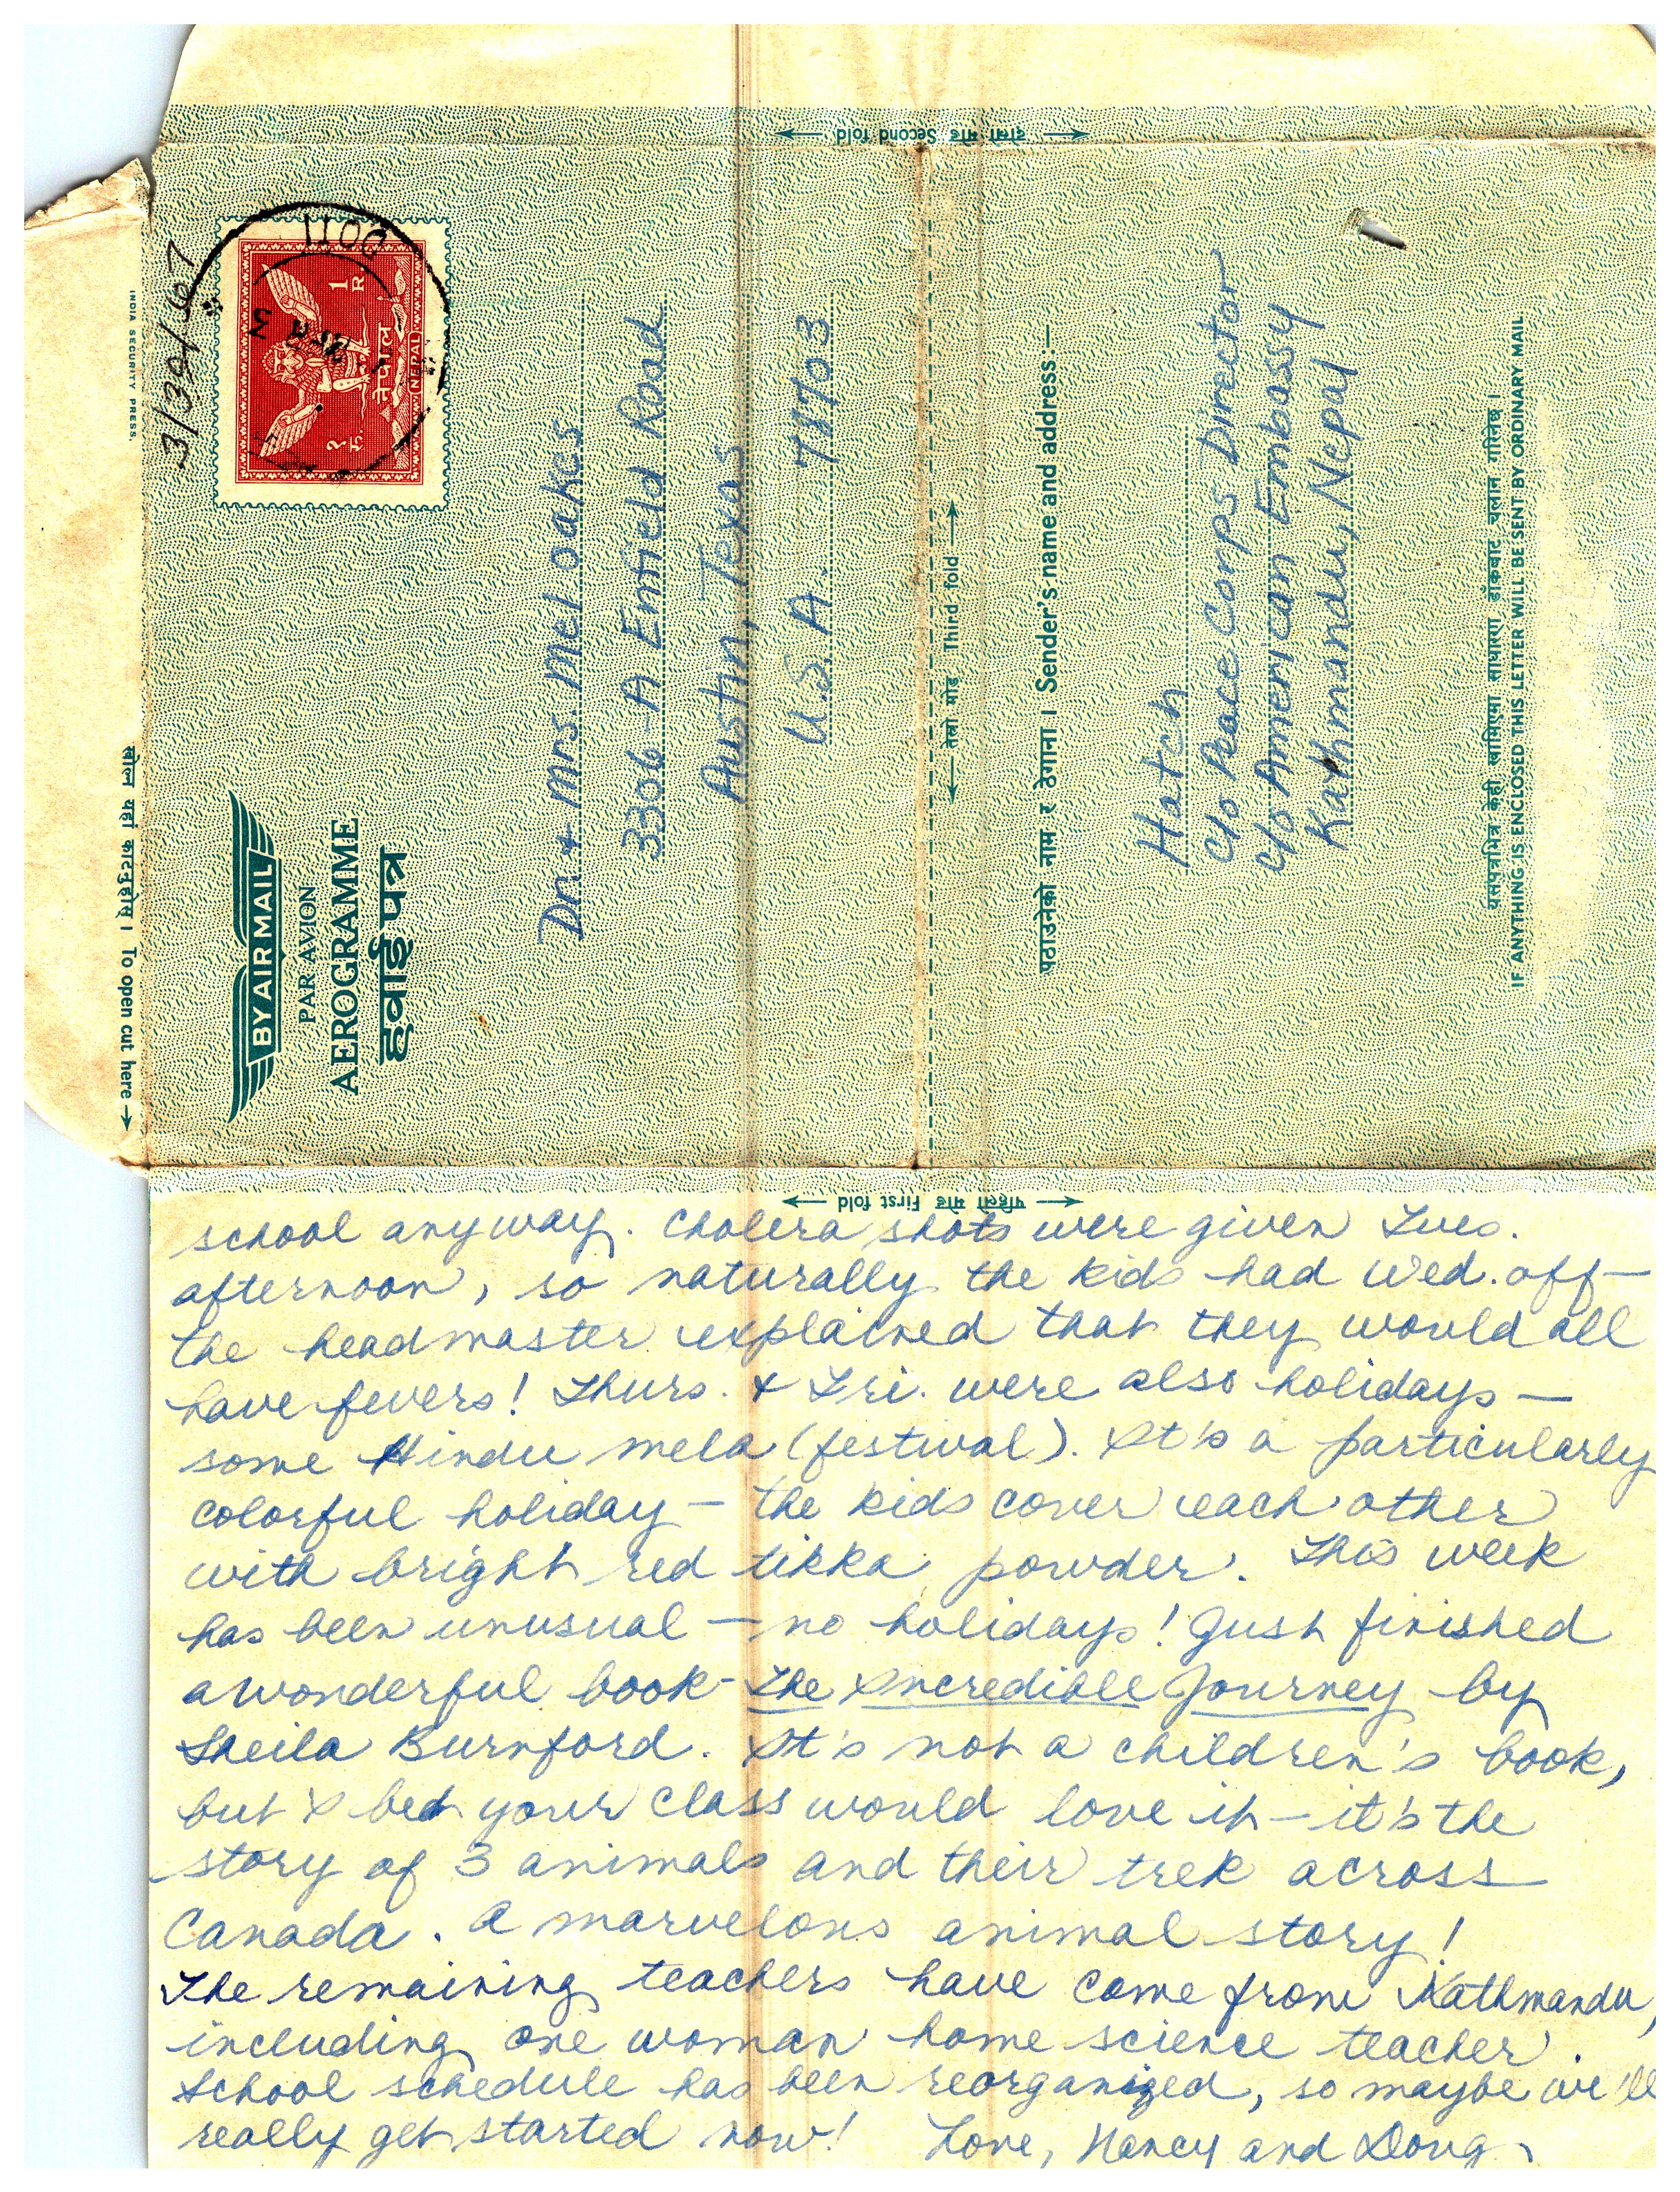 दोस्रो मोड Second fold
3/30/67
INDIA SECURITY PRESS.
खोल्न यहां काट्नुहोस् । To open cut here →
DOTI
१ रु.
नेपाल
NEPAL
1 R
BY AIR MAIL
PAR AVION
AEROGRAMME
हवाई पत्र
Dr. & Mrs. Mel Oakes
3306-A Enfield Road
Austin, Texas
U.S.A. 78703
← तेस्रो मोड Third fold →
पठाउनेको नाम र ठेगाना । Sender's name and address:—
Hatch
c/o Peace Corps Director
c/o American Embassy
Kathmandu, Nepal
यसपत्रभित्र केही खामिएमा साधारण डाँकबाट चलान गरिनेछ ।
IF ANYTHING IS ENCLOSED THIS LETTER WILL BE SENT BY ORDINARY MAIL
पहिलो मोड First fold
school anyway. Cholera shots were given Tues.
afternoon, so naturally the kids had Wed. off—
the headmaster explained that they would all
have fevers! Thurs. & Fri. were also holidays—
some Hindu mela (festival). It's a particularly
colorful holiday — the kids cover each other
with bright red tikka powder. This week
has been unusual — no holidays! Just finished
a wonderful book - The Incredible Journey by
Sheila Burnford. It's not a children's book,
but I bet your class would love it — it's the
story of 3 animals and their trek across
Canada. A marvelous animal story!
The remaining teachers have come from Kathmandu,
including one woman home science teacher.
School schedule has been reorganized, so maybe we'll
really get started now! Love, Nancy and Doug